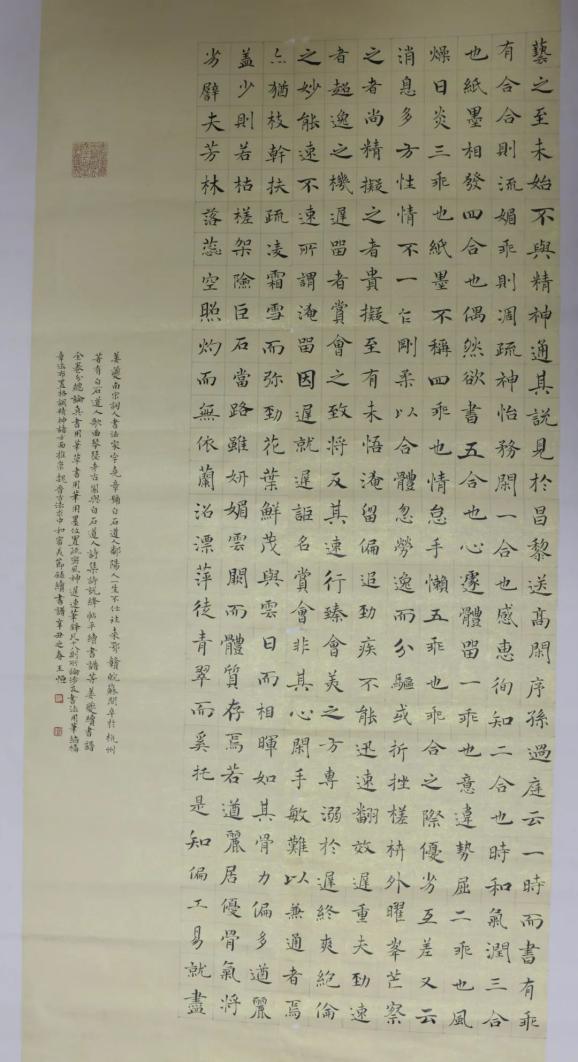 藝之至未始不與精神通其説見於昌黎送高閑序孫過庭云一時而書有乖
有合合則流媚乖則凋疏神怡務閑一合也感惠徇知二合也時和氣潤三合
也紙墨相發四合也偶然欲書五合也心遽體留一乖也意違勢屈二乖也風
燥日炎三乖也紙墨不稱四乖也情怠手懶五乖也乖合之際優劣互差又云
消息多方性情不一乍剛柔以合體忽勞逸而分驅或折挫槎枿外曜峯芒察
之者尚精擬之者貴擬至有未悟淹留偏追勁疾不能迅速翻效遲重夫勁速
者超逸之機遲留者賞會之致將反其速行臻會美之方專溺於遲終爽絕倫
之妙能速不速所謂淹留因遲就遲詎名賞會非其心閑手敏難以兼通者焉
亦猶枝幹扶疏凌霜雪而弥勁花葉鮮茂與雲日而相暉如其骨力偏多遒麗
蓋少則若枯槎架險巨石當路雖妍媚雲闕而體質存焉若遒麗居優骨氣將
劣譬夫芳林落蕊空照灼而無依蘭沼漂萍徒青翠而奚托是知偏工易就盡
姜夔南宋詞人書法家字堯章號白石道人鄱陽人一生不仕往來鄂贛皖蘇間卒於杭州
著有白石道人歌曲琴與白石道人詩集詩説絳帖平續書譜等姜夔續書譜
全卷分總論真書用筆草書用筆用墨位置疏密風神遲速筆鋒凡十八則所論涉及書法用筆結構
章法布置格調精神諸方面推崇魏晉古法求中和審美節錄續書譜辛丑之春王恒